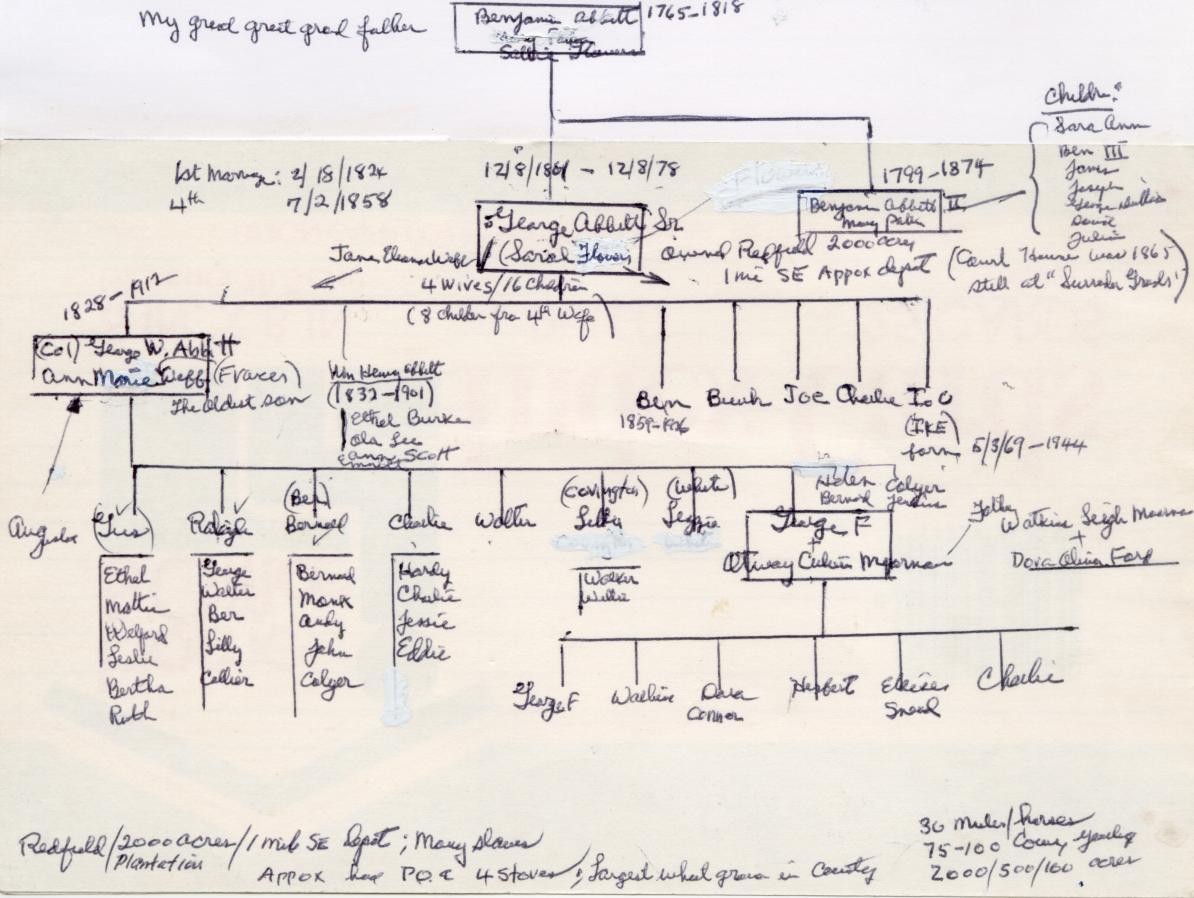 My great great grand father
Benjamin Abbitt 1765-1818
Sallie Flowers
Children:
Sara Ann
Ben III
James
Joseph
George William
David
Julia
1st Marriage: 2/18/1824
4th 7/2/1858
12/8/1801 - 12/8/78
Flowers
1799-1874
Benjamin Abbitt II
Mary Patten
George Abbitt Sr
(Sarah Flowers
Owned Redfield 2000 acres
1 mi SE Appox depot
(Court House was 1865
still at "Surrender Grounds")
Jane Eleanor Webb
4 Wives/16 Children
(8 children from 4th Wife)
1828-1912
(Col) George W. Abbitt
Ann Marie Webb (Frances)
The oldest son
Wm Henry Abbitt
(1832-1901)
Ethel Burke
Ola Lee
Scott
Emmett
Ben
1859-1926
Joe
Charlie
(IKE)
5/3/69-1944
Augustus
(Gus)
Ethel
Mattie
Welford
Leslie
Bertha
Ruth
Raleigh
George
Walter
Ben
Lilly
Collier
(Ben)
Bernard
Bernard
Andy
John
Colyer
Charlie
Hardy
Charlie
Jessie
Eddie
Walter
(Covington)
Walker
Willie
(White)
Helen
Bernard
Colyer
Jenkins
George F
+
Otway Calvin Moorman
Father
Watkins Leigh Moorman
+
Dora Oliver Ford
George F
Watkins
Dora
Connor
Herbert
Eloises
Snead
Charlie
Redfield/2000 acres/1 mile SE Depot; Many slaves
Plantation
Appox had P.O. & 4 Stores; Largest wheat grower in County
30 mules/horses
75-100 Cows, yearly
2000/500/100 acres